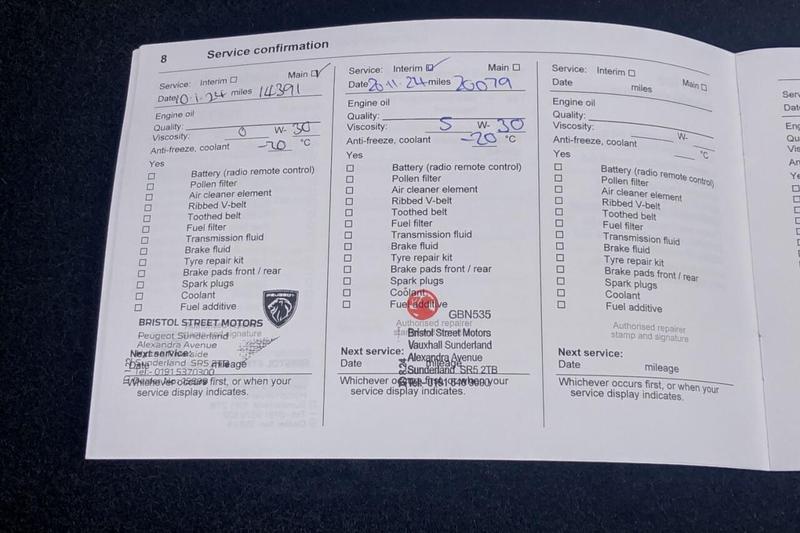 8 Service confirmation
Service: Interim ☐ Main ☐ ✓
Date 10.1.24 miles 14391
Engine oil
Quality:
Viscosity: 0 W- 30
Anti-freeze, coolant -20 °C
Yes
☐ Battery (radio remote control)
☐ Pollen filter
☐ Air cleaner element
☐ Ribbed V-belt
☐ Toothed belt
☐ Fuel filter
☐ Transmission fluid
☐ Brake fluid
☐ Tyre repair kit
☐ Brake pads front / rear
☐ Spark plugs
☐ Coolant
☐ Fuel additive
PEUGEOT
BRISTOL STREET MOTORS
Peugeot Sunderland
Alexandra Avenue
Next service:
Sunderland SR5 2TB
Date mileage
Tel:- 0191 5370300
Whichever occurs first, or when your
service display indicates.
Service: Interim ☑ Main ☐
Date 20.11.24 miles 20079
Engine oil
Quality:
Viscosity: 5 W- 30
Anti-freeze, coolant -20 °C
Yes
☐ Battery (radio remote control)
☐ Pollen filter
☐ Air cleaner element
☐ Ribbed V-belt
☐ Toothed belt
☐ Fuel filter
☐ Transmission fluid
☐ Brake fluid
☐ Tyre repair kit
☐ Brake pads front / rear
☐ Spark plugs
☐ Coolant
☐ Fuel additive
GBN535
Authorised repairer
stamp and signature
Bristol Street Motors
Vauxhall Sunderland
Next service: Alexandra Avenue
Date mileage
Sunderland SR5 2TB
Whichever occurs first, or when your
service display indicates.
Service: Interim ☐ Main ☐
Date miles
Engine oil
Quality:
Viscosity: W-
Anti-freeze, coolant °C
Yes
☐ Battery (radio remote control)
☐ Pollen filter
☐ Air cleaner element
☐ Ribbed V-belt
☐ Toothed belt
☐ Fuel filter
☐ Transmission fluid
☐ Brake fluid
☐ Tyre repair kit
☐ Brake pads front / rear
☐ Spark plugs
☐ Coolant
☐ Fuel additive
Authorised repairer
stamp and signature
Next service:
Date mileage
Whichever occurs first, or when your
service display indicates.